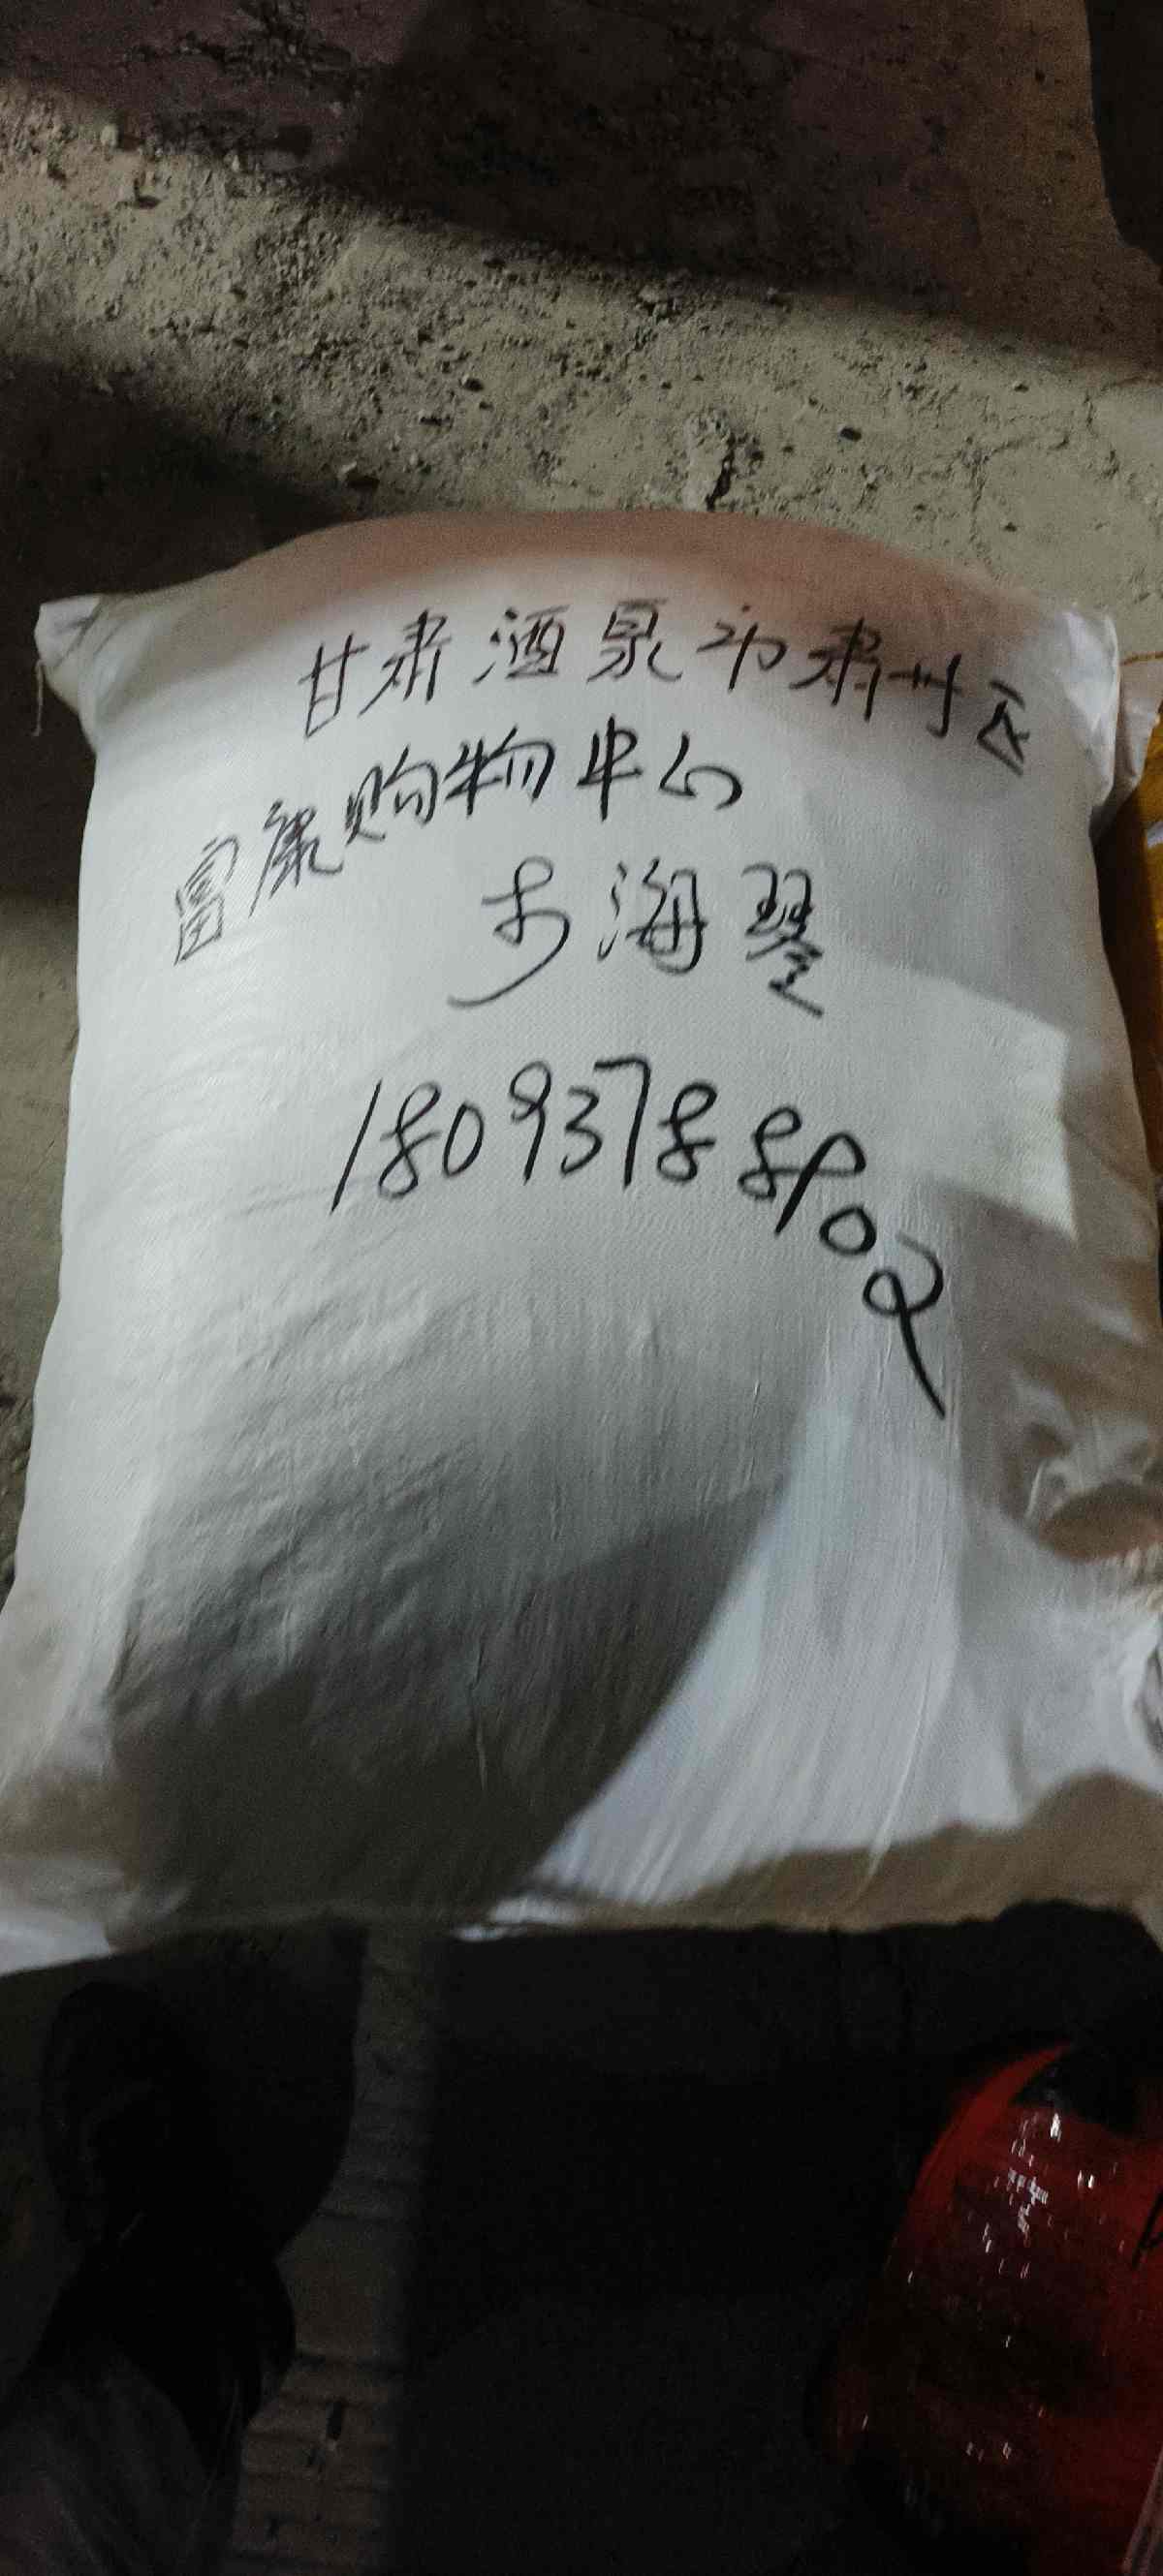 甘肃酒泉市肃州区
富康购物中心
步海琴
18093788902